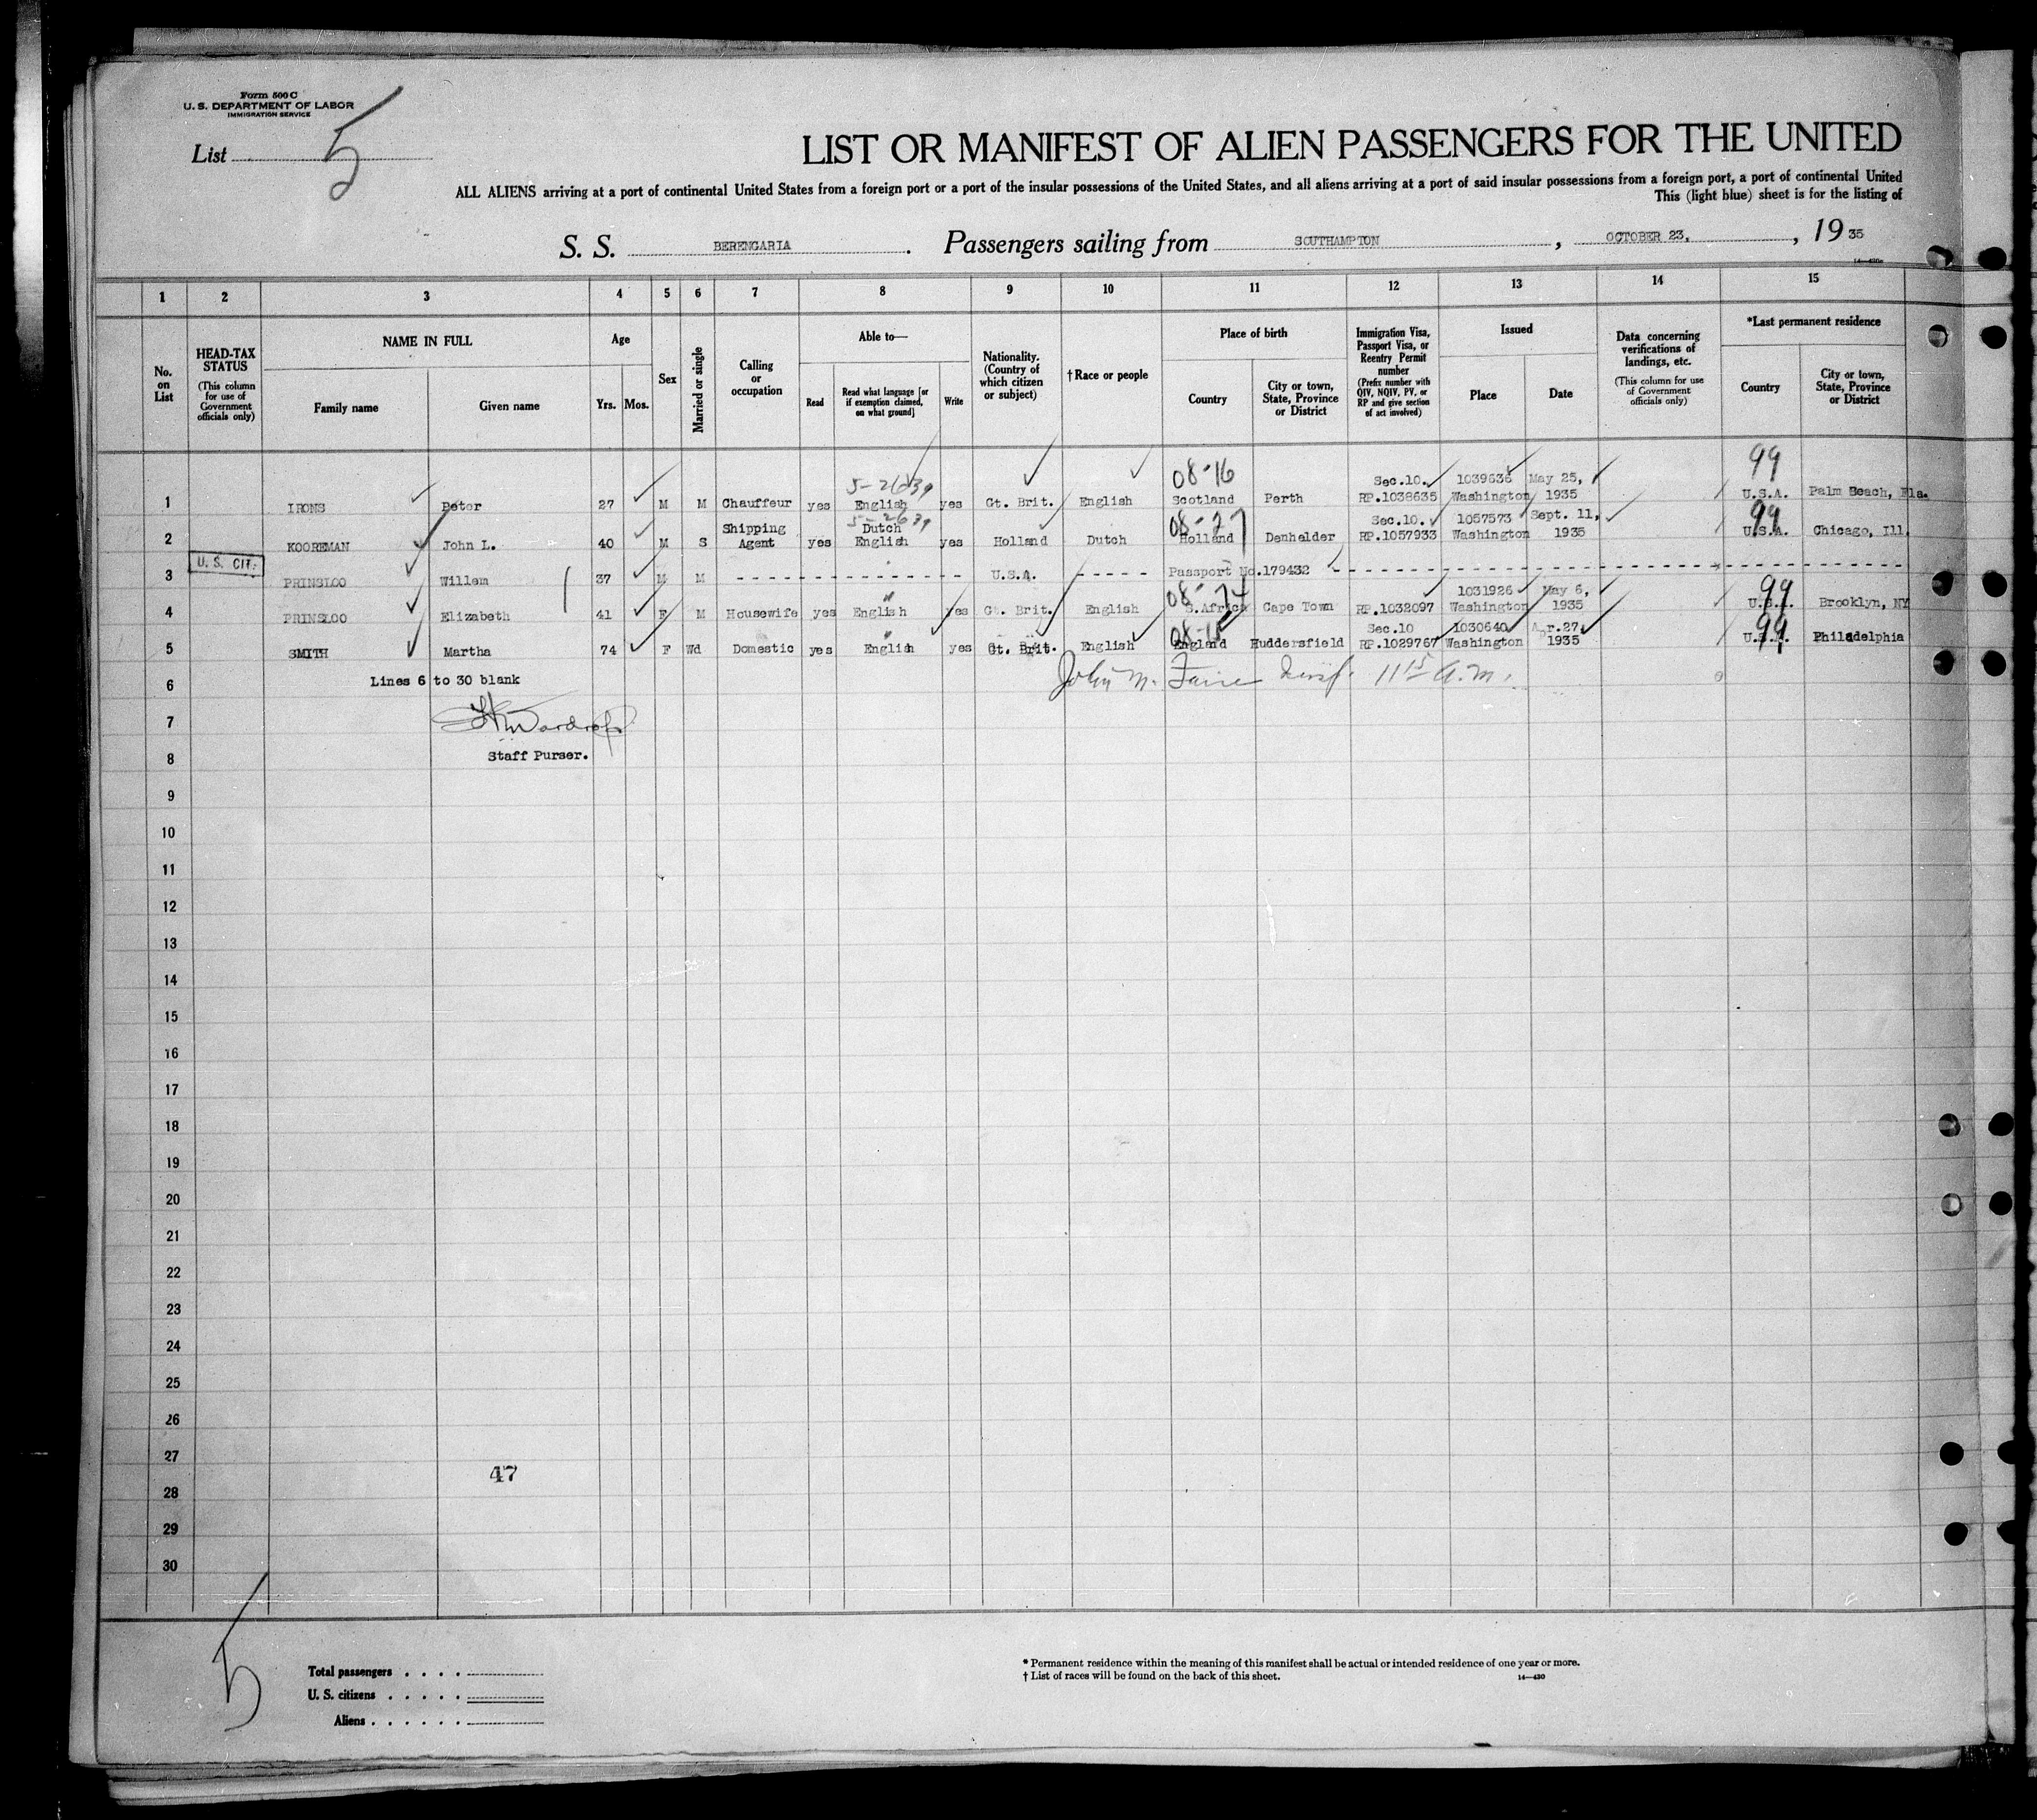 Form 500 C
U. S. DEPARTMENT OF LABOR
IMMIGRATION SERVICE
List 5
LIST OR MANIFEST OF ALIEN PASSENGERS FOR THE UNITED
ALL ALIENS arriving at a port of continental United States from a foreign port or a port of the insular possessions of the United States, and all aliens arriving at a port of said insular possessions from a foreign port, a port of continental United
This (light blue) sheet is for the listing of
S. S. BERENGARIA. Passengers sailing from SOUTHAMPTON, OCTOBER 23, , 19 35
1 2 3 4 5 6 7 8 9 10 11 12 13 14 15
No. on List
HEAD-TAX STATUS (This column for use of Government officials only)
NAME IN FULL
Family name
Given name
Age
Yrs. Mos.
Sex
Married or single
Calling or occupation
Able to—
Read
Read what language [or if exemption claimed, on what ground]
Write
Nationality. (Country of which citizen or subject)
† Race or people
Place of birth
Country
City or town, State, Province or District
Immigration Visa, Passport Visa, or Reentry Permit number (Prefix number with QIV, NQIV, PV, or RP and give section of act involved)
Issued
Place
Date
Data concerning verifications of landings, etc. (This column for use of Government officials only)
*Last permanent residence
Country
City or town, State, Province or District
08-16 Sec.10. 1039636 May 25, 99
1 IRONS Peter 27 M M Chauffeur yes English yes Gt. Brit. English Scotland Perth RP.1038635 Washington 1935 U.S.A. Palm Beach, Fla.
Shipping Dutch 08-27 Sec.10. 1057573 Sept. 11, 99
2 KOOREMAN John L. 40 M S Agent yes English yes Holland Dutch Holland Denhelder RP.1057933 Washington 1935 U.S.A. Chicago, Ill.
U. S. CIT.
3 PRINSLOO Willem 37 M M U.S.A. Passport No.179432
08-74 1031926 May 6, 99
4 PRINSLOO Elizabeth 41 F M Housewife yes English yes Gt. Brit. English S.Africa Cape Town RP.1032097 Washington 1935 U.S.A. Brooklyn, NY
Sec.10 1030640 Apr.27, 99
5 SMITH Martha 74 F Wd Domestic yes English yes Gt. Brit. English England Huddersfield RP.1029767 Washington 1935 U.S.A. Philadelphia
6 Lines 6 to 30 blank John M. 11 15 a.m.
7
8 Staff Purser.
9
10
11
12
13
14
15
16
17
18
19
20
21
22
23
24
25
26
27
47
28
29
30
5
Total passengers . . . .
U. S. citizens . . . . .
Aliens . . . . . .
* Permanent residence within the meaning of this manifest shall be actual or intended residence of one year or more.
† List of races will be found on the back of this sheet.
14—430